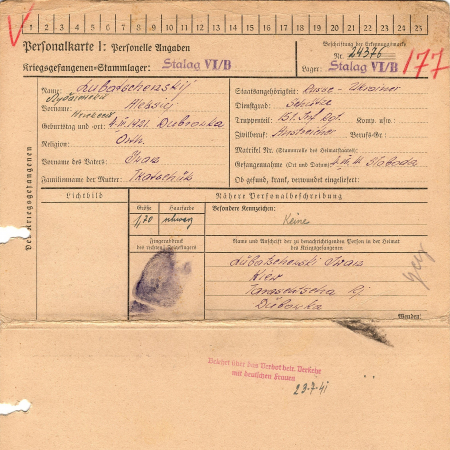 1 2 3 4 5 6 7 8 9 10 11 12 13 14 15 16 17 18 19 20 21 22 23 24 25
Personalkarte I: Personelle Angaben
Beschriftung der Erkennungsmarke
Nr. 24376
177
Kriegsgefangenen-Stammlager: Stalag VI/B
Lager: Stalag VI/B
Des Kriegsgefangenen
Name: Lubatschenskij
Staatsangehörigkeit: Russe - Ukrainer
Vorname: Aleksij
Dienstgrad: Schütze
Truppenteil: 151. Inf. Rgt. Komp. usw.:
Geburtstag und -ort: 1921. Dubrowka
Zivilberuf: Anstreicher Berufs-Gr.:
Religion: Orth.
Matrikel Nr. (Stammrolle des Heimatstaates):
Vorname des Vaters: Iwan
Gefangennahme (Ort und Datum): Sloboda
Familienname der Mutter: Tkatschuk
Ob gesund, krank, verwundet eingeliefert:
Lichtbild
Nähere Personalbeschreibung
Größe
Haarfarbe
Besondere Kennzeichen:
1,70
schwarz
Keine
Fingerabdruck
des rechten Zeigefingers
Name und Anschrift der zu benachrichtigenden Person in der Heimat
des Kriegsgefangenen
Lubatschenski Iwan
Kiew
Taraschtscha Rj
Dubowka
Wenden!
Belehrt über das Verbot betr. Verkehr
mit deutschen Frauen
23.7.41